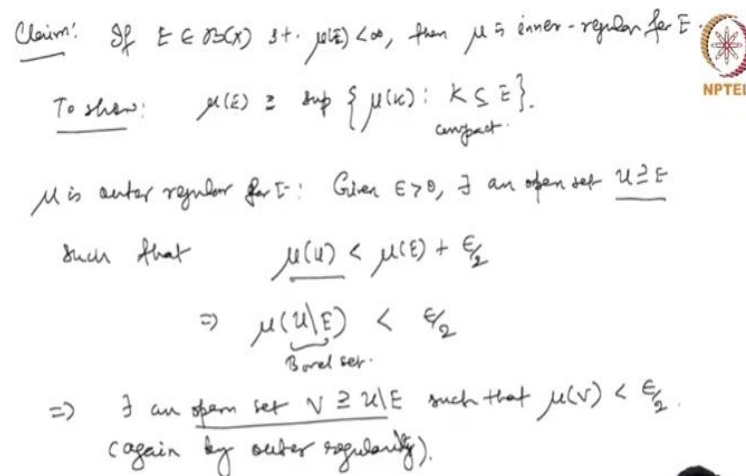 Claim: If E ∈ B(X) s.t. μ(E) < ∞, then μ is inner-regular for E.
NPTEL
To show: μ(E) = sup { μ(K) : K ⊆ E }.
compact.
μ is outer regular for E: Given ε > 0, ∃ an open set U ⊇ E
such that μ(U) < μ(E) + ε/2
⇒ μ(U\E) < ε/2
Borel set.
⇒ ∃ an open set V ⊇ U\E such that μ(V) < ε/2.
(again by outer regularity).